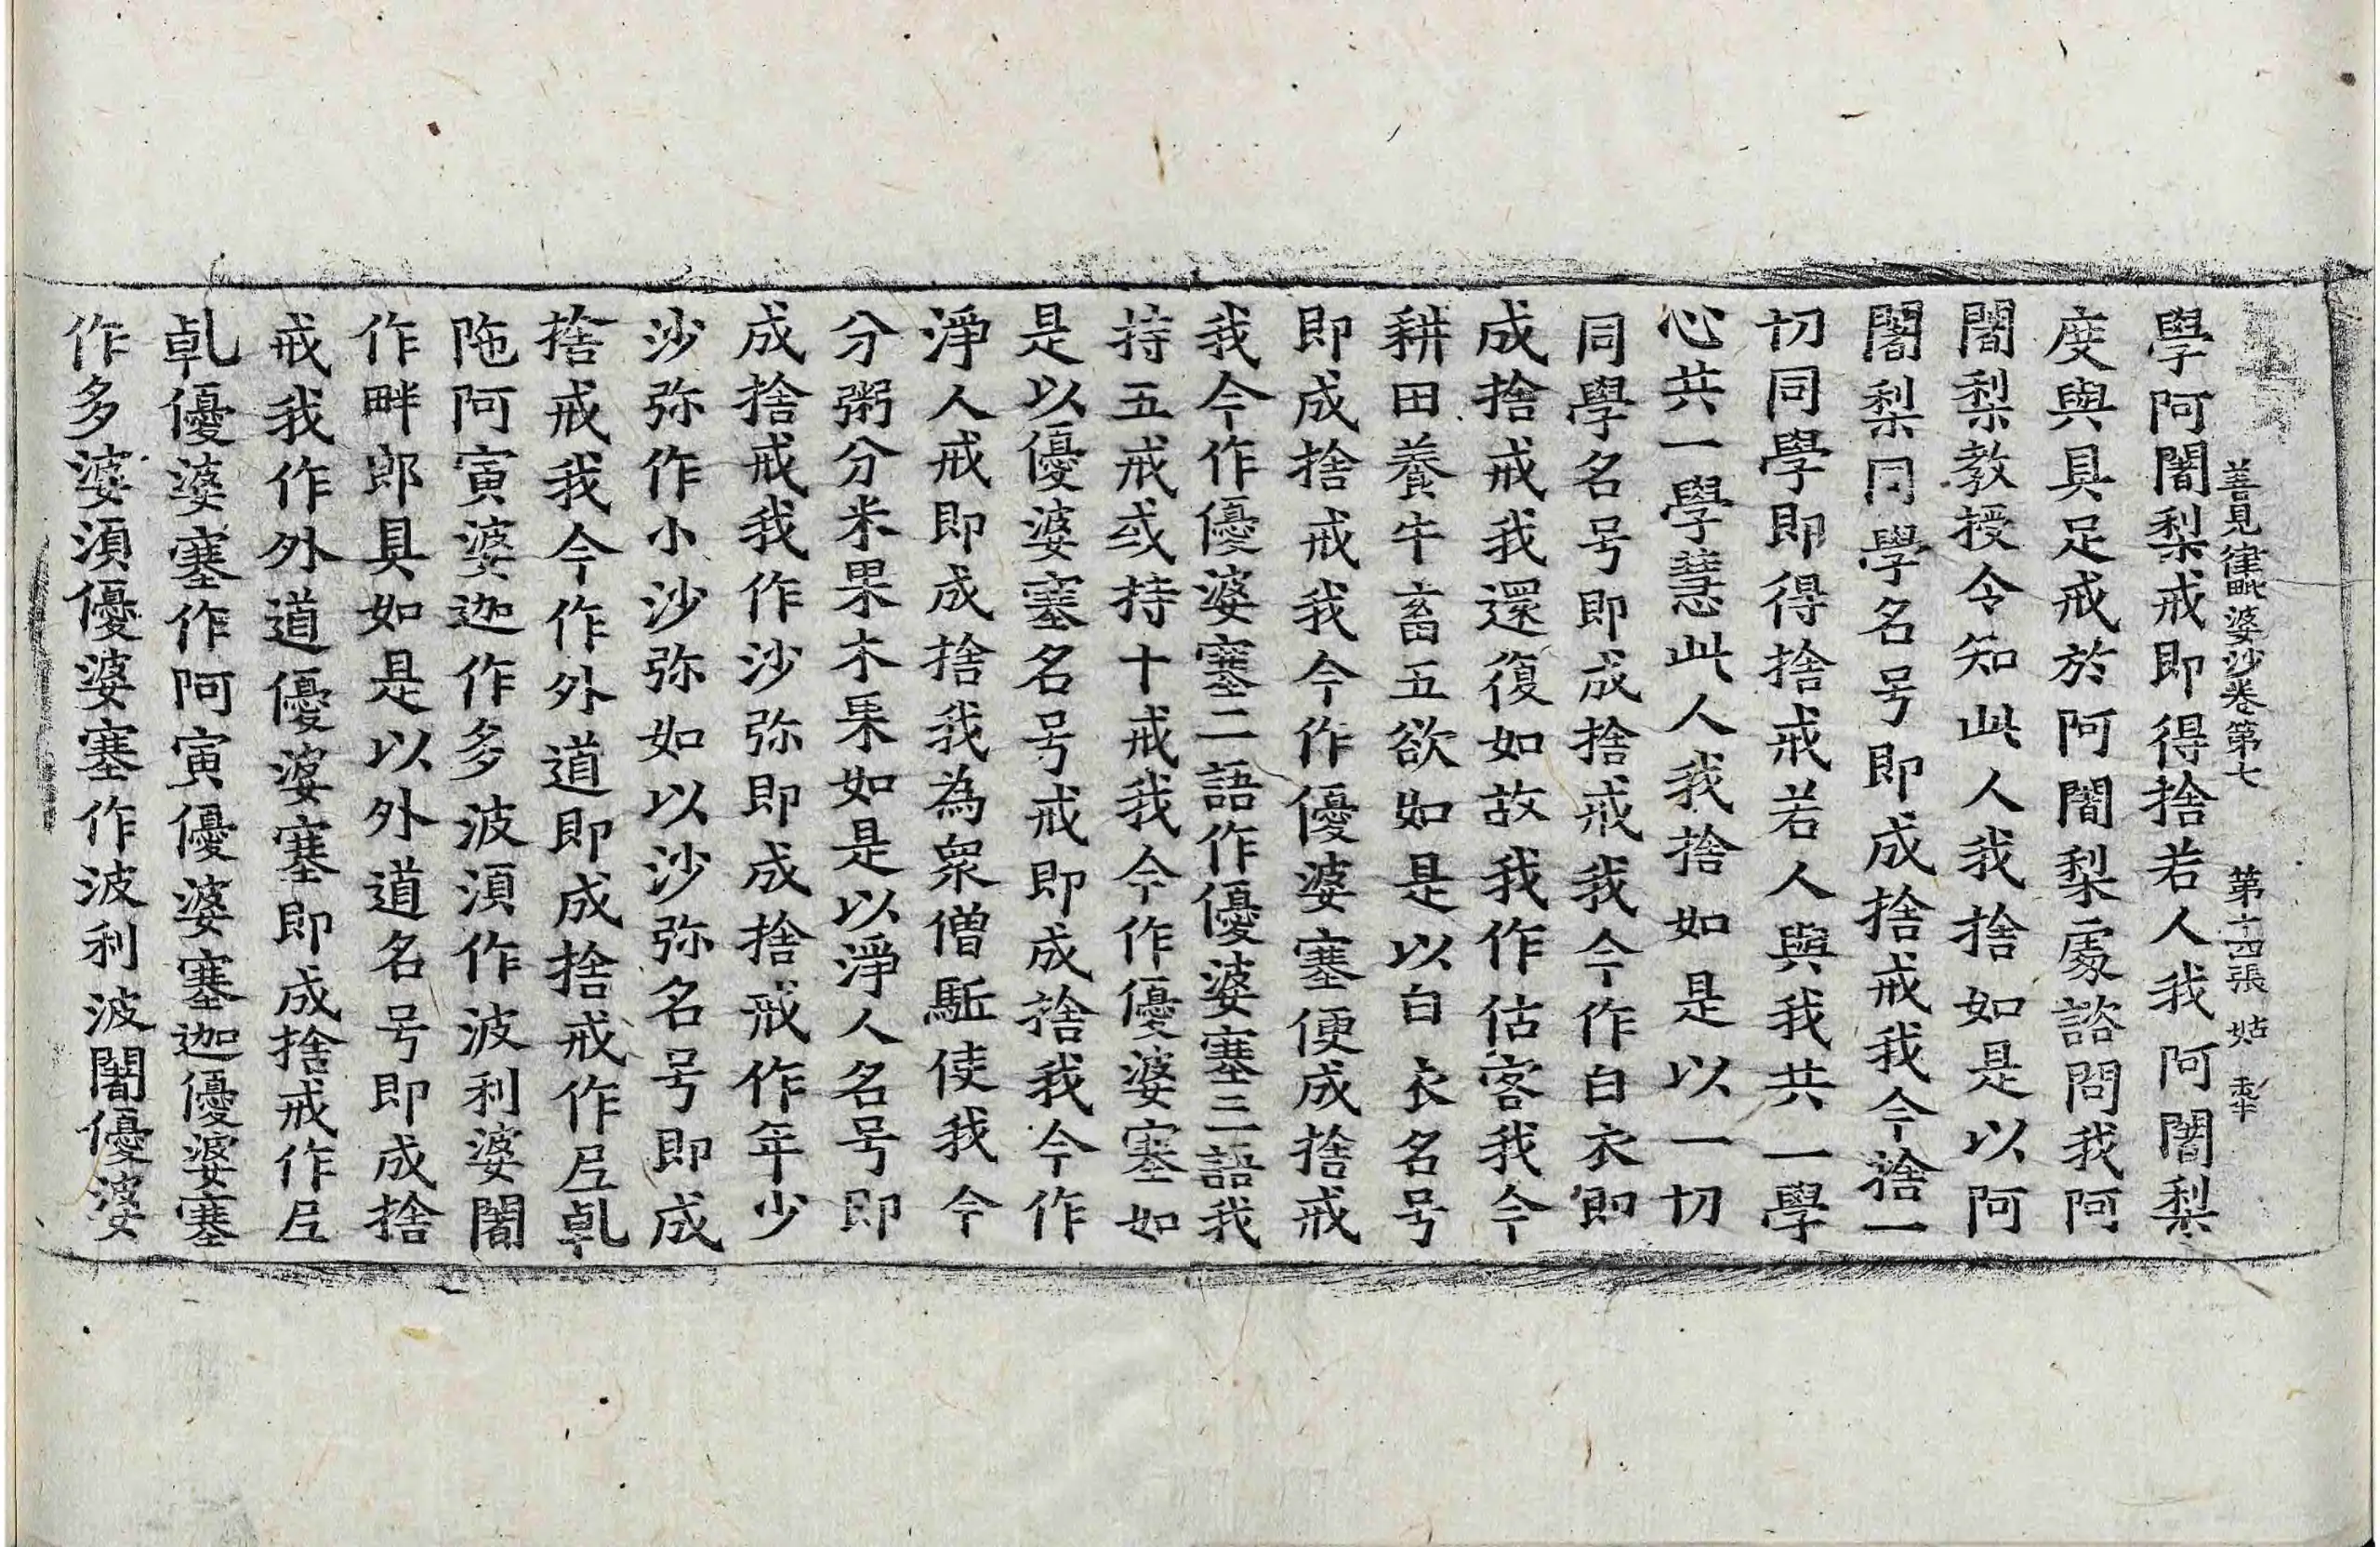 善見律毗婆沙卷第七　第十四張　姑
學阿闍梨戒即得捨若人我阿闍梨
度與具足戒於阿闍梨處諮問我阿
闍梨教授令知此人我捨如是以阿
闍梨同學名号即成捨戒我今捨一
切同學即得捨戒若人與我共一學
心共一學慧此人我捨如是以一切
同學名号即成捨戒我今作白衣即
成捨戒我還復如故我作估客我今
耕田養牛畜五欲如是以白衣名号
即成捨戒我今作優婆塞便成捨戒
我今作優婆塞二語作優婆塞三語我
持五戒或持十戒我今作優婆塞如
是以優婆塞名号戒即成捨我今作
淨人戒即成捨我為衆僧駈使我今
分粥分米果木果如是以淨人名号即
成捨戒我作沙弥即成捨戒作年少
沙弥作小沙弥如以沙弥名号即成
捨戒我今作外道即成捨戒作尼乹
陁阿寅婆迦作多波湏作波利婆闍
作畔郎具如是以外道名号即成捨
戒我作外道優婆塞即成捨戒作尼
乹優婆塞作阿寅優婆塞迦優婆塞
作多婆湏優婆塞作波利波闍優婆